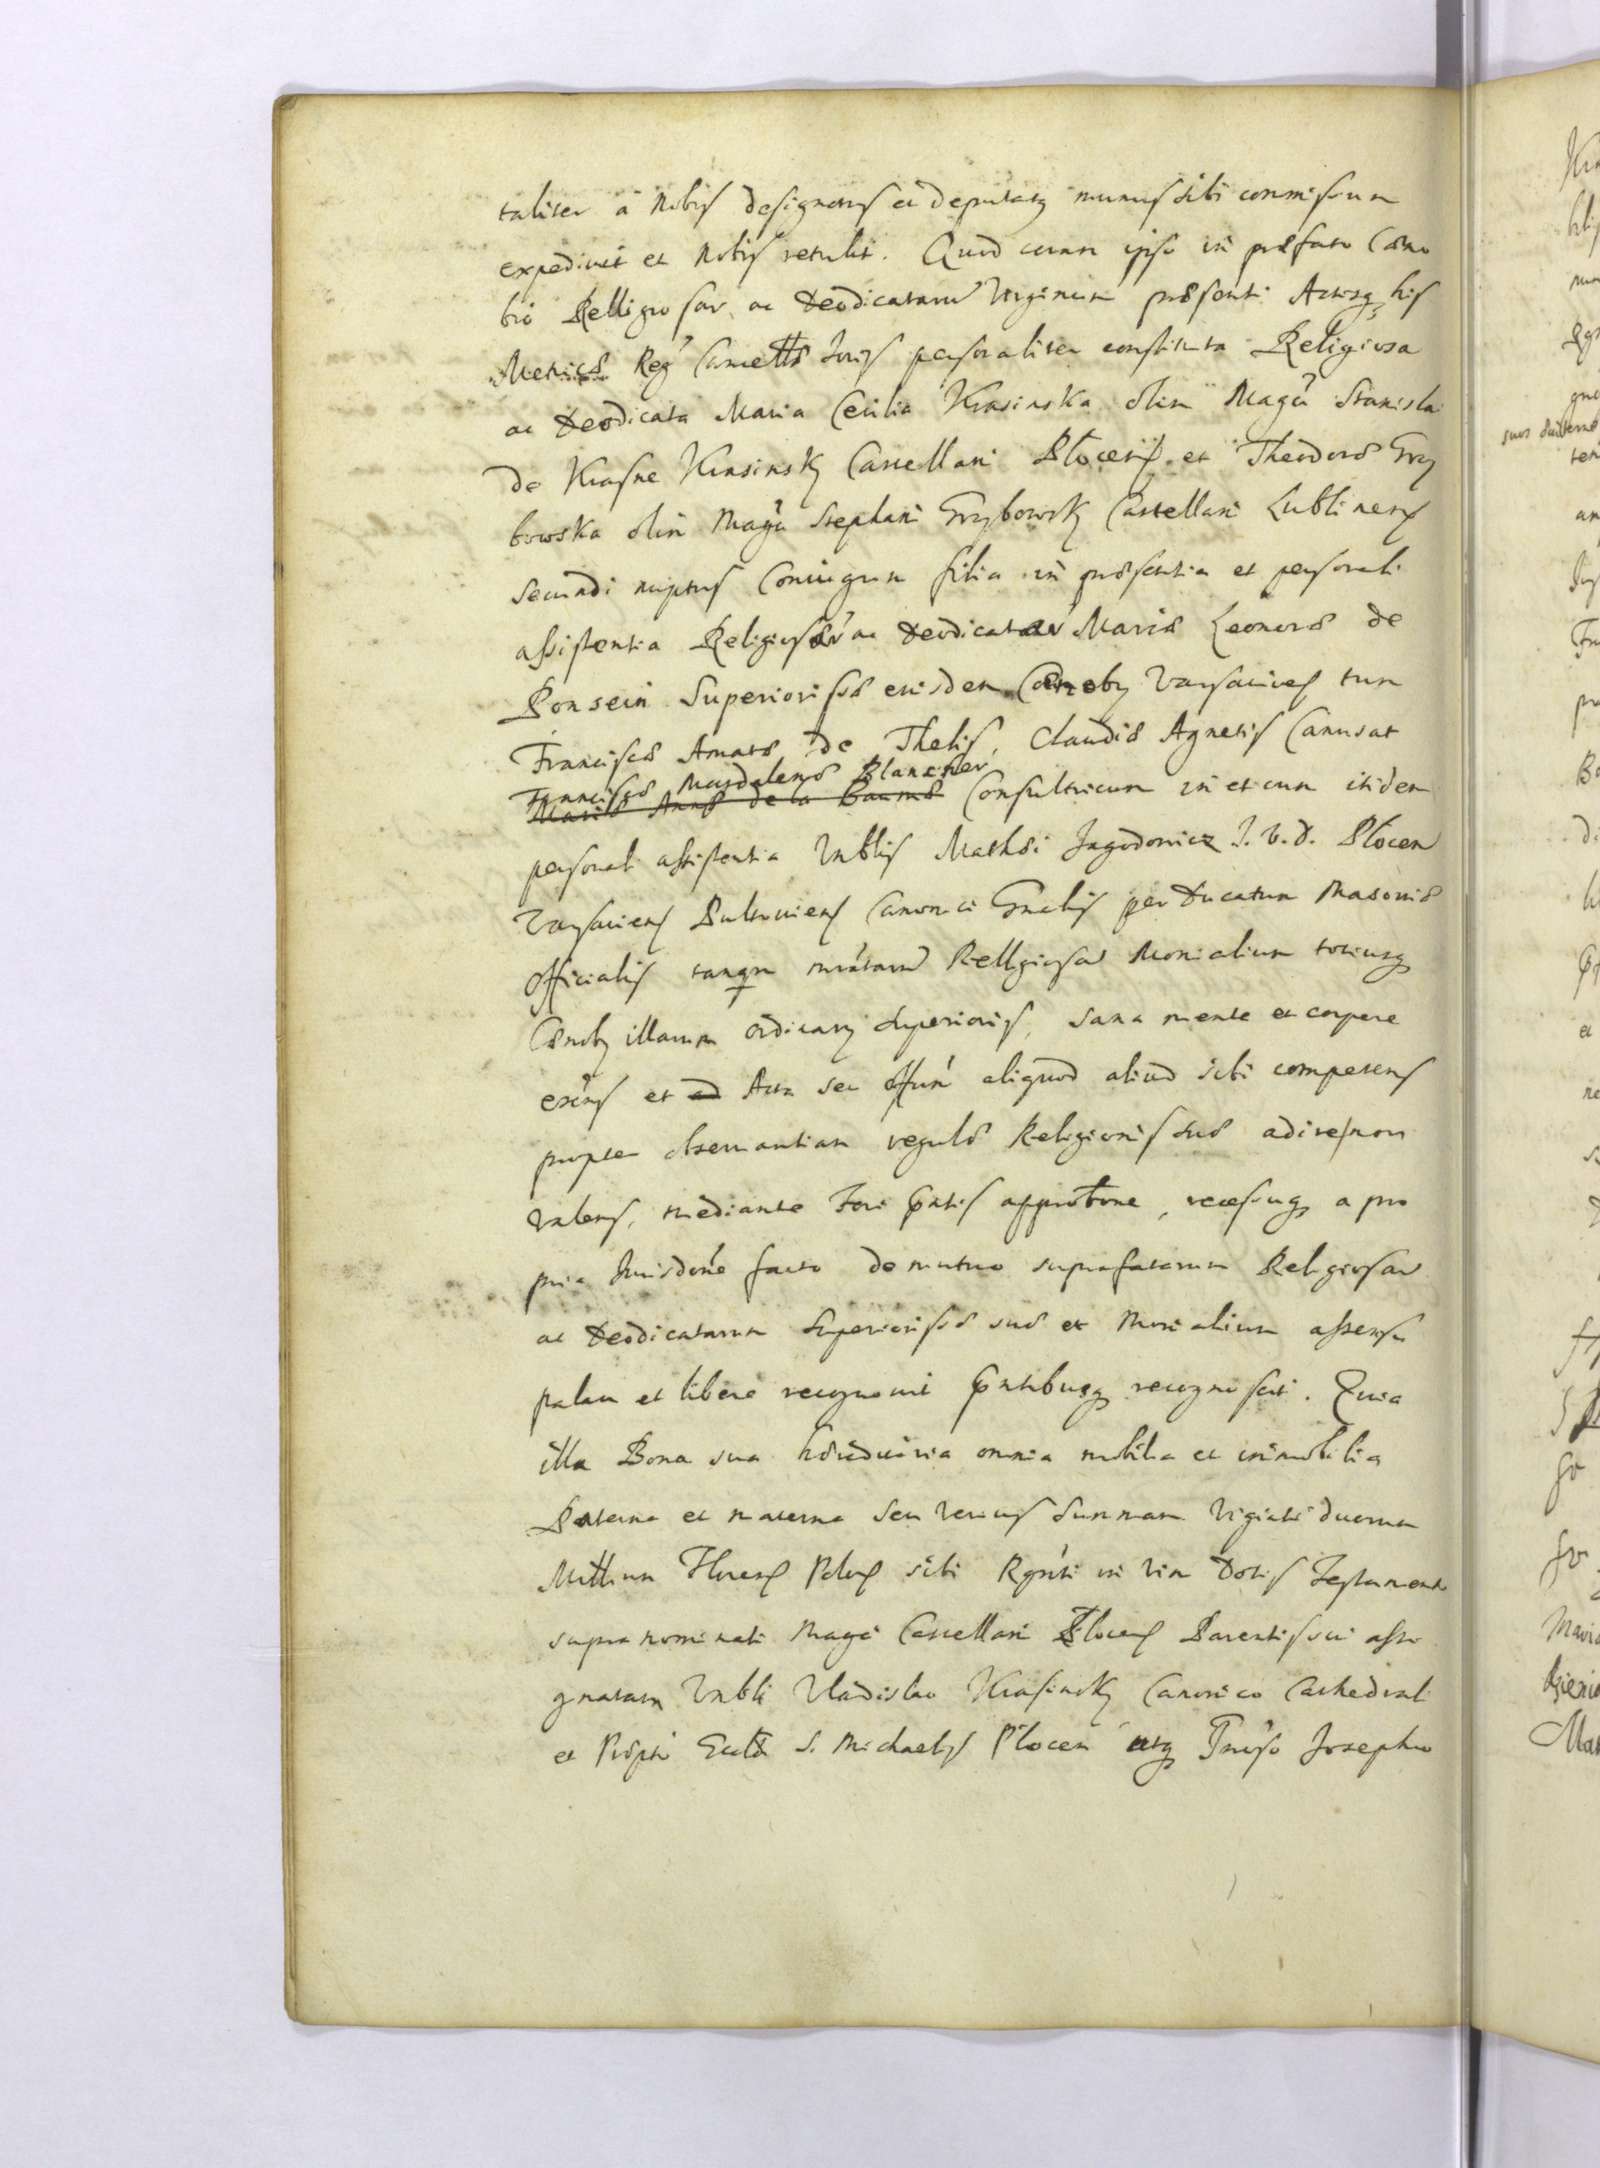 taliter a Nobis designatus et deputatq munus sibi commissum
expedivit et Nobis retulit. Quod coram ipso in præfato Cæno
bio Relligiosar ac Deodicatarum Virginum præsenti Actisq his
Metricæ Reg Cancellæ personaliter constituta Religiosa
ac Deodicata Maria Cecilia Krasinska olim Magci Stanislai
de Krasne Krasinsky Castellani Plocens et Theodoræ Grzy
bowska olim Magci Stephani Grzybowsky Castellani Lublinens
secundi nuptus Coniugum filia in præsentia et personali
assistentia Religiosar ac Deodicatar Mariæ Leonoræ de
Ponsein Superiorissæ eiusdem Cænoby Varsavien tum
Franciscæ Amatæ de Thelis, Claudiæ Agnetis Canusat
Franciscæ Magdalenæ Blancher
Mariæ Annæ de la Baumæ Consultricum in et cum itidem
personali assistentia Vnblis Mathæi Jagodowicz J. V. D. Plocen
Varsaviens Pultoviens Canonici Gnalis per Ducatum Masoviæ
Officialis tanqm Relligiosar Monialium totiusq
Cænoby illarum ordinary Superioris, sana mente et corpore
exens et ad Acta seu Offun aliquod aliud sibi competens
propter observantiam regulæ Religionis suæ adire non
valens, mediante Fori pntis approbone, recessuq a pro
pria Jurisdone facto de mutuo suprafatarum Religiosar
ac Deodicatarum Superiorissæ suæ et Monialium assensu
palam et libere recognovit pntibusq recognoscit. Quia
illa Bona sua hæreditaria omnia mobilia et immobilia
Paterna et materna seu verius summam Viginti duorum
Millium Florens Polns sibi Rgnti in vim Dotis Testamento
supra nominati Magci Castellani Plocens Parentis sui assi
gnatam Vnbli Vladislao Krasinsky Canonico Cathedrali
et Præpto Eccla S. Michaelys Plocen atq Gnrso Josepho